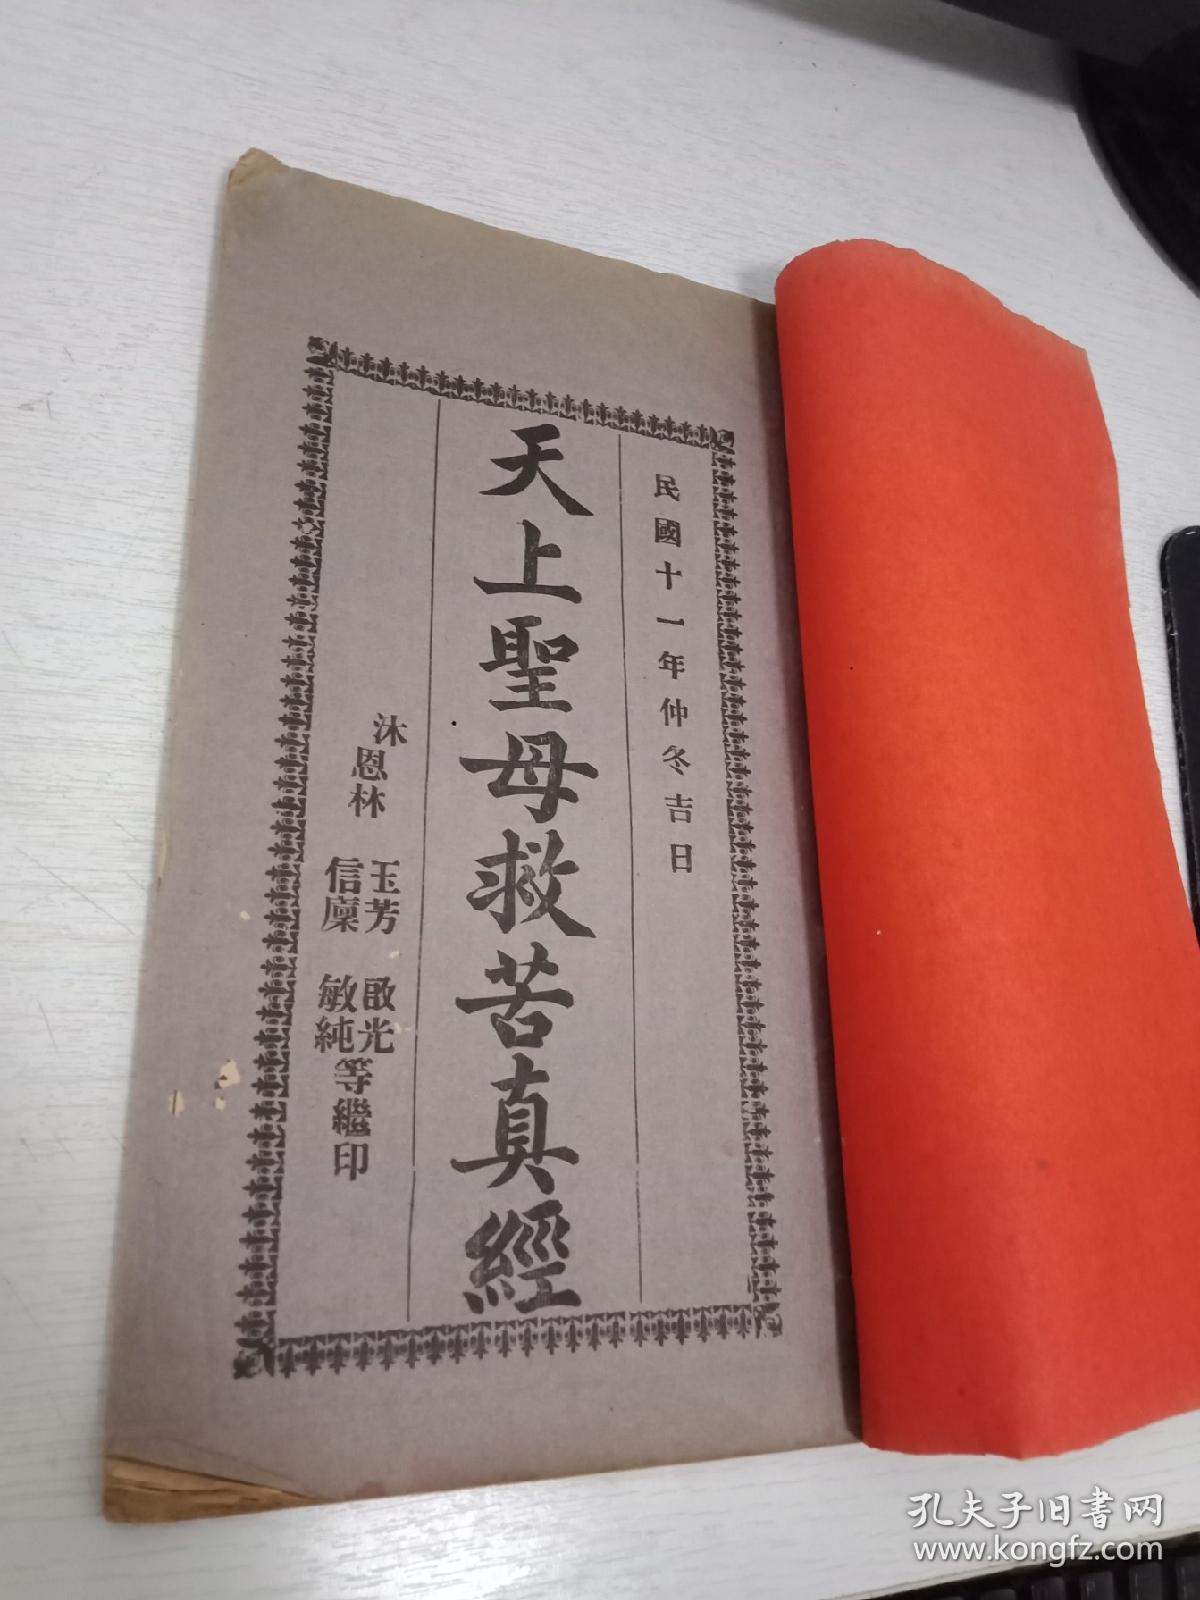 民國十一年仲冬吉日
天上聖母救苦真經
沐恩林
玉芳
信廩
啟光
敏純
等繼印
孔夫子旧书网
www.kongfz.com